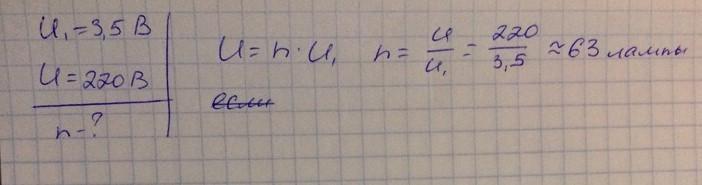 U₁ = 3,5 В
U = 220 В
n - ?
U = n · U₁ n = U/U₁ = 220/3,5 ≈ 63 лампы
если